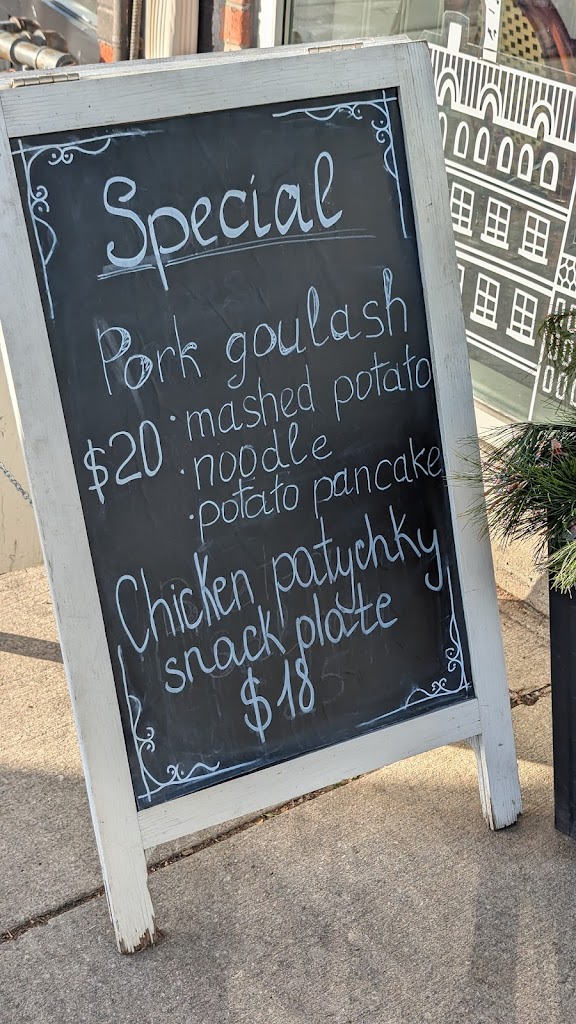 Special
Pork goulash
$20 · mashed potato
· noodle
· potato pancake
Chicken patychky
snack plate
$18